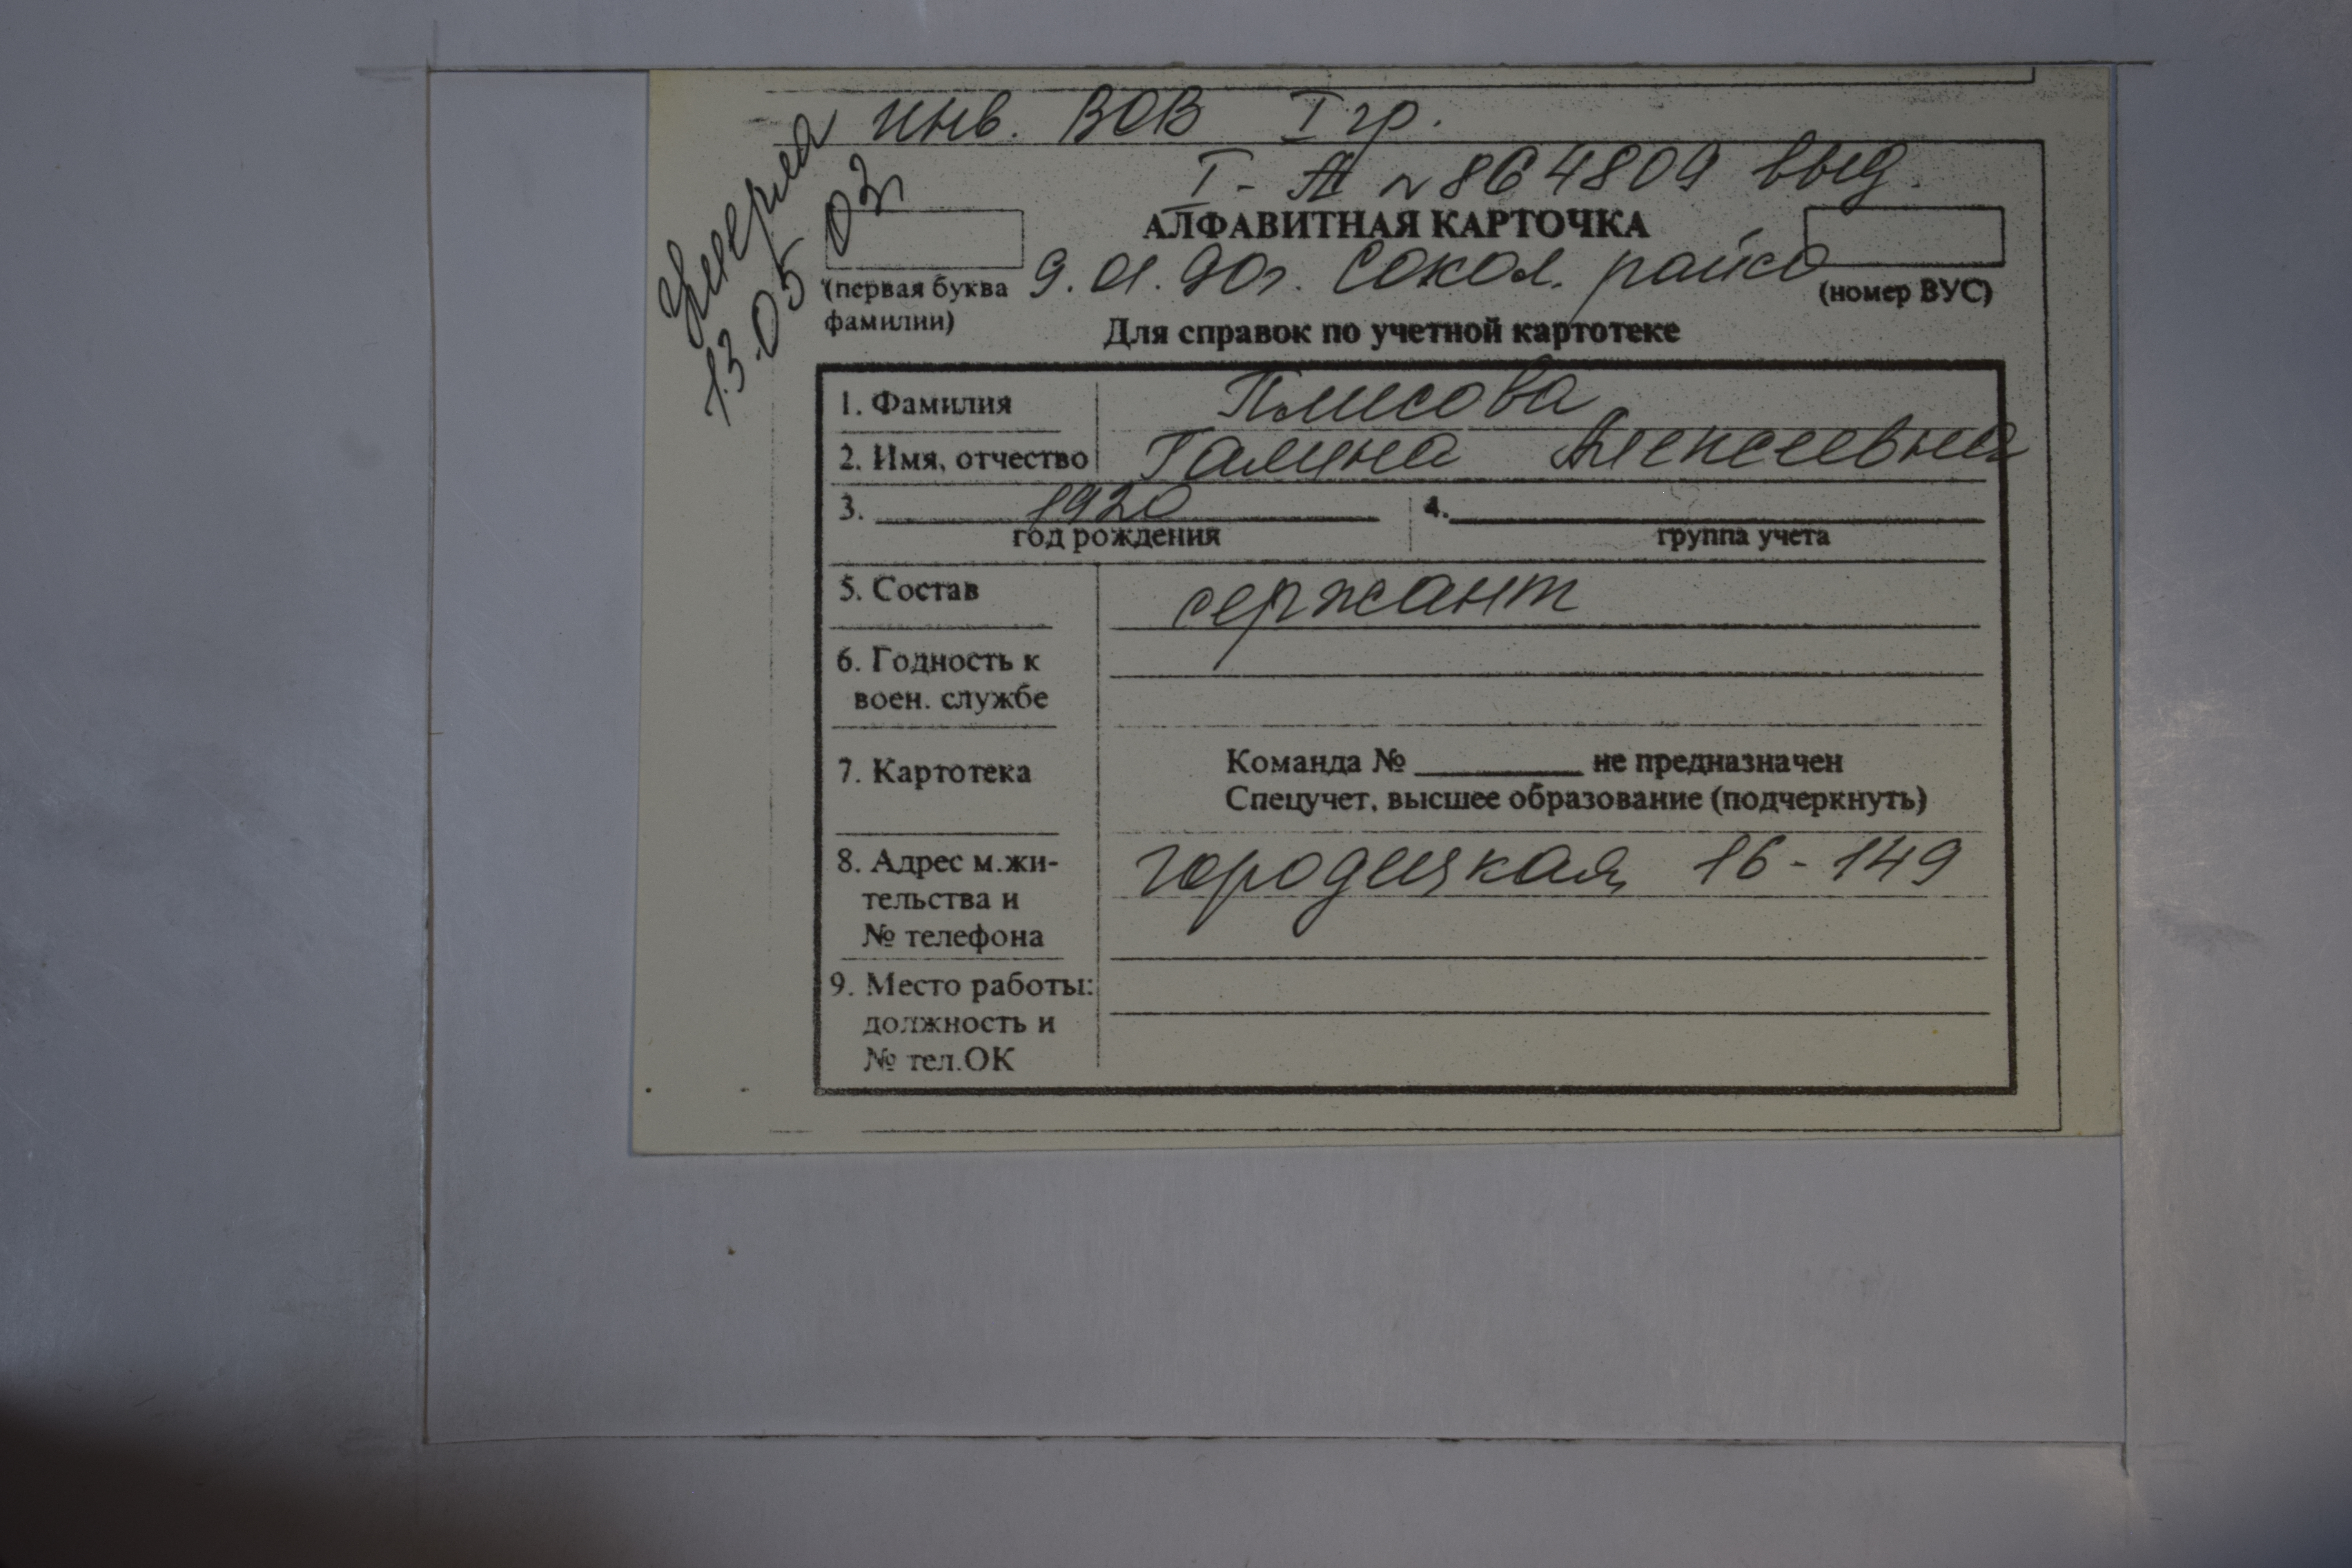 инв. ВОВ I гр.
Умерла
13.05.03г
I-Я №864809 выд.
АЛФАВИТНАЯ КАРТОЧКА
9.01.90г. Сокол. райсо
(первая буква
фамилии)
(номер ВУС)
Для справок по учетной картотеке
1. Фамилия Плисова
2. Имя, отчество Галина Алексеевна
3. 1920 4.
год рождения группа учета
5. Состав сержант
6. Годность к
воен. службе
7. Картотека
Команда № не предназначен
Спецучет, высшее образование (подчеркнуть)
8. Адрес м.жи-
тельства и
№ телефона
городецкая 16-149
9. Место работы:
должность и
№ тел.ОК